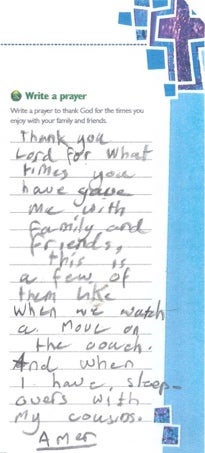 Write a prayer
Write a prayer to thank God for the times you
enjoy with your family and friends.
Thank you
Lord for what
times you
have gave
me with
family and
friends,
this is
a few of
them like
when we watch
a move on
the couch.
And when
I have, sleep-
overs with
my cousins.
Amen